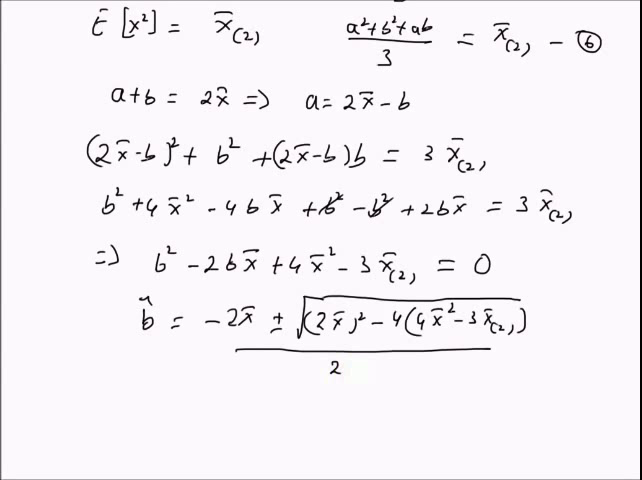 E [x²] = x̄₍₂₎ (a²+b²+ab)/3 = x̄₍₂₎ – ⑥
a+b = 2x̄ => a = 2x̄ – b
(2x̄-b)² + b² + (2x̄-b)b = 3 x̄₍₂₎
b² + 4x̄² - 4bx̄ + b² - b² + 2bx̄ = 3 x̄₍₂₎
=> b² - 2bx̄ + 4x̄² - 3x̄₍₂₎ = 0
b̂ = (-2x̄ ± √((2x̄)² - 4(4x̄² - 3x̄₍₂₎)))/2